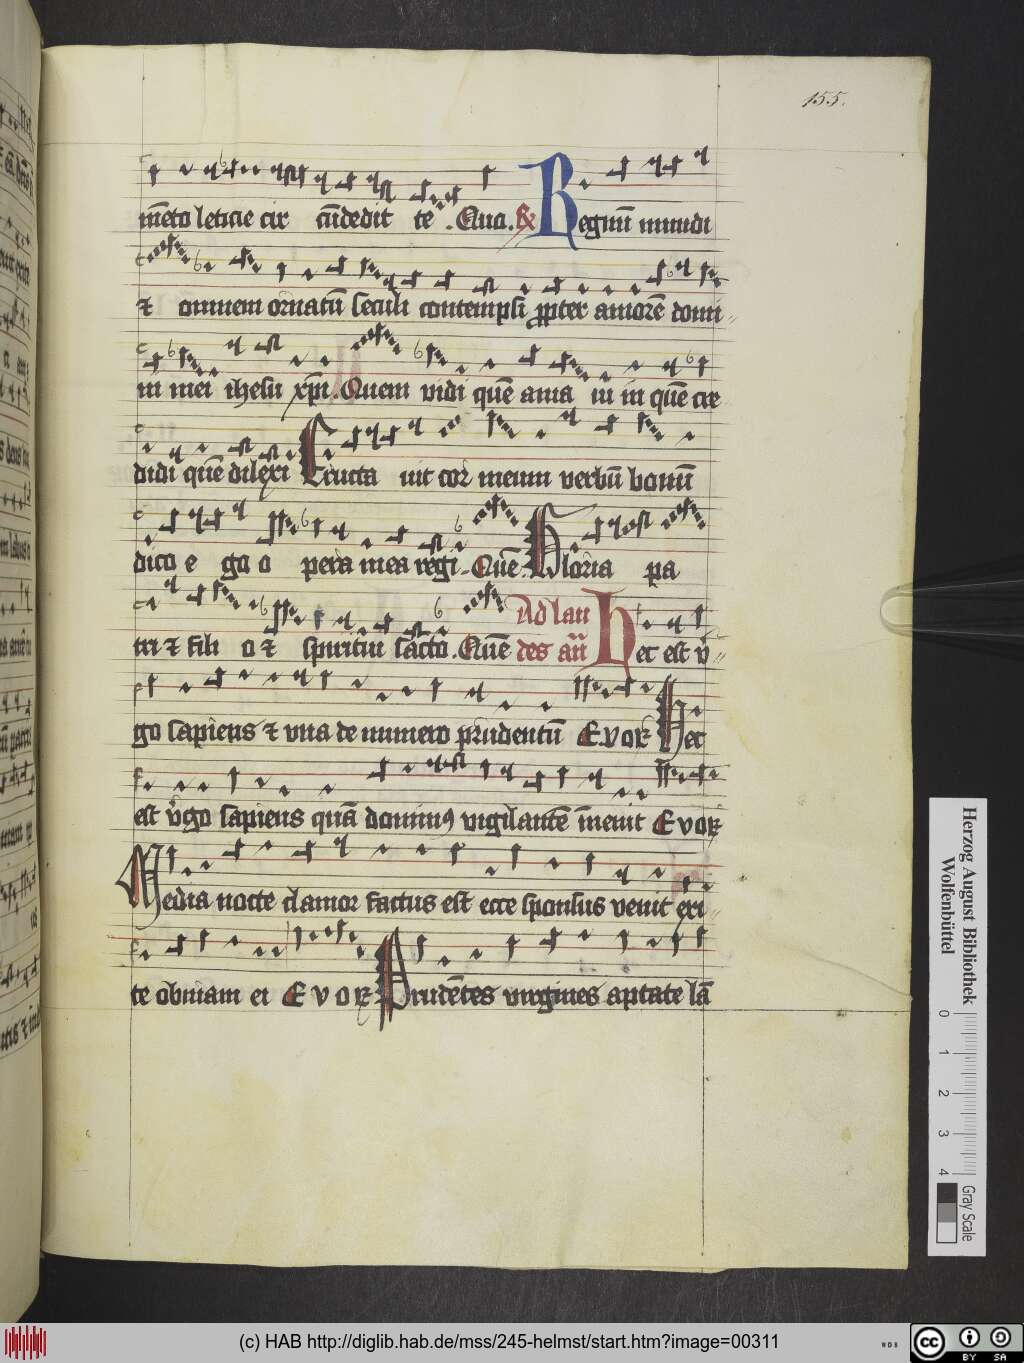 155.
m̄eto leticie cir cūdedit te . Qua. R̷ Regnū mundi
⁊ omnem ornatū seculi contempsi ꝓpter amorē domi
ni mei ihesu xp̄i . Quem vidi quē ama ui in quē cre
didi quē dilexi Eructa uit cor meum verbū bonū
dico e go o pera mea regi . Quē . Gloria pa
tri ⁊ fili o ⁊ spiritui sācto . Quē Ad lau
des an̄ Hec est v̉
go sapiens ⁊ vna de numero prudentū Evor Hec
est v̉go sapiens quā dominꝰ vigilantē īnenit Evor
Media nocte clamor factus est ecce sponsus venit exi
te obuiam ei Evor Prudētes virgines aptate lā
Herzog August Bibliothek
Wolfenbüttel
0 1 2 3 4
Gray Scale
(c) HAB http://diglib.hab.de/mss/245-helmst/start.htm?image=00311
WDB
cc BY SA